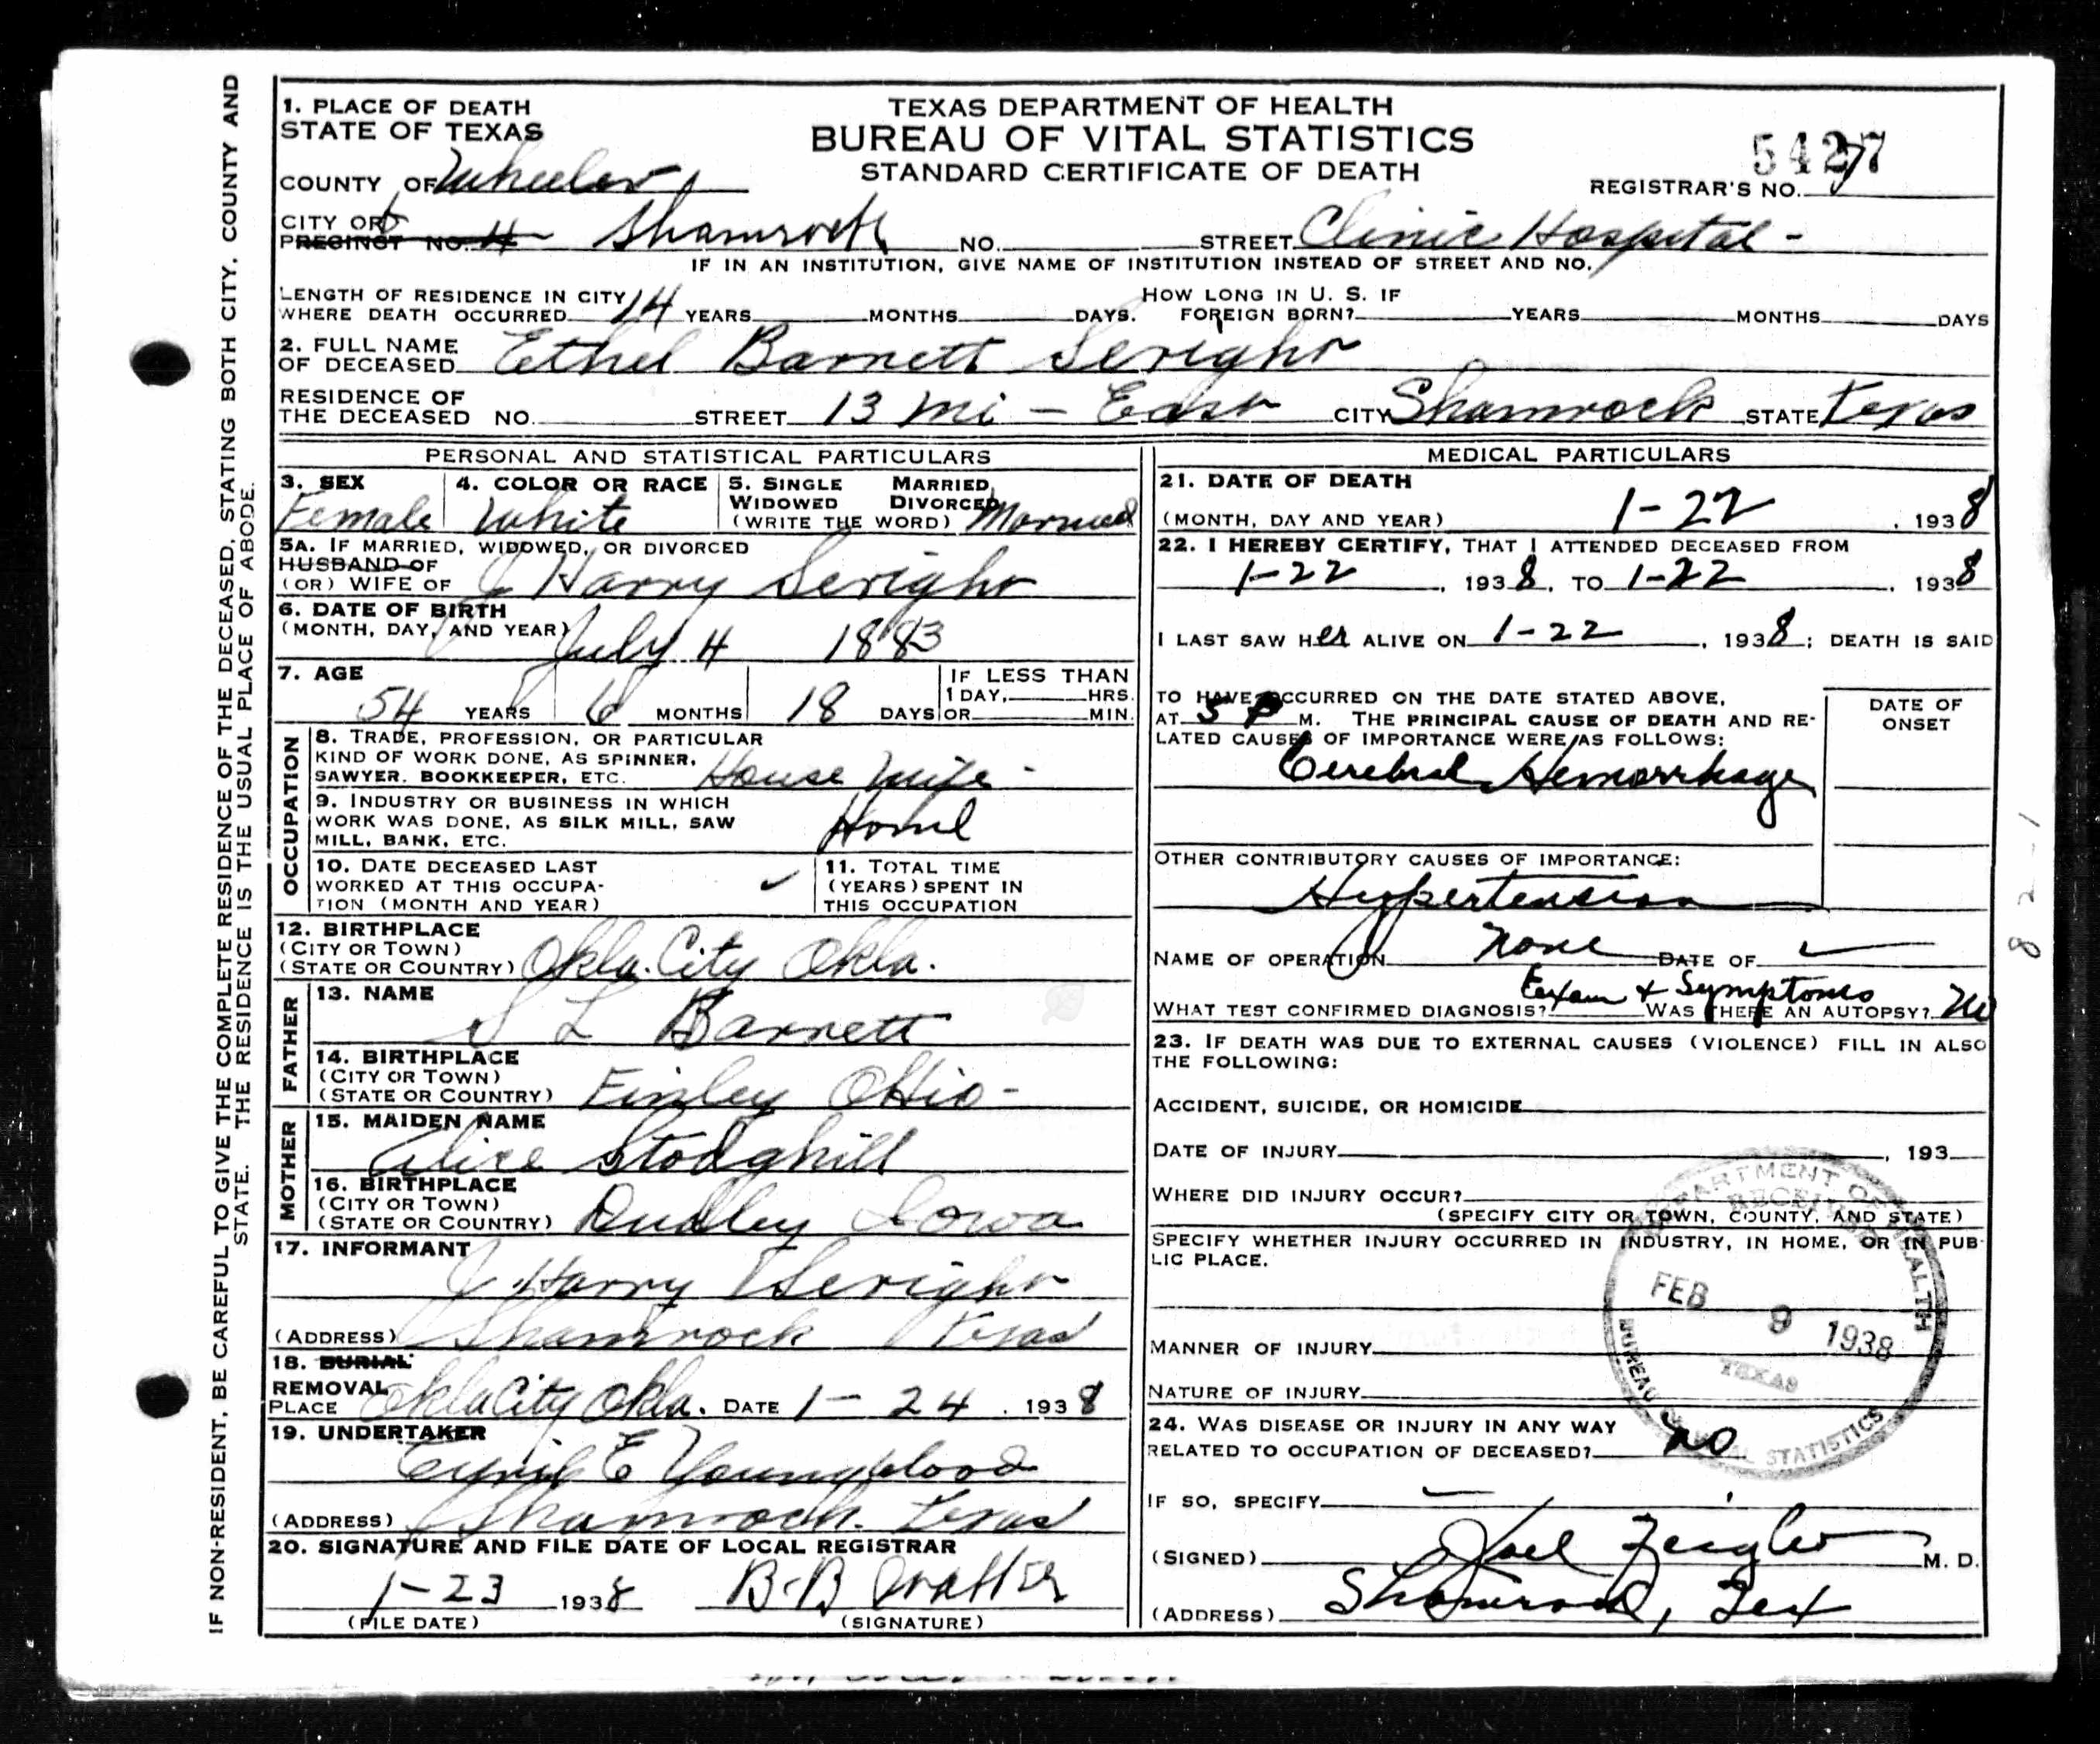 IF NON-RESIDENT, BE CAREFUL TO GIVE THE COMPLETE RESIDENCE OF THE DECEASED, STATING BOTH CITY, COUNTY AND
STATE. THE RESIDENCE IS THE USUAL PLACE OF ABODE.
TEXAS DEPARTMENT OF HEALTH
BUREAU OF VITAL STATISTICS
STANDARD CERTIFICATE OF DEATH
5427
REGISTRAR'S NO. 7
1. PLACE OF DEATH
STATE OF TEXAS
COUNTY OF Wheeler
CITY OR
PRECINCT NO. 4 Shamrock NO. STREET Clinic Hospital -
IF IN AN INSTITUTION, GIVE NAME OF INSTITUTION INSTEAD OF STREET AND NO.
LENGTH OF RESIDENCE IN CITY HOW LONG IN U. S. IF
WHERE DEATH OCCURRED 14 YEARS MONTHS DAYS. FOREIGN BORN? YEARS MONTHS DAYS
2. FULL NAME
OF DECEASED Ethel Barnett Serighr
RESIDENCE OF
THE DECEASED NO. STREET 13 mi - East CITY Shamrock STATE Texas
PERSONAL AND STATISTICAL PARTICULARS
3. SEX
Female
4. COLOR OR RACE
White
5. SINGLE MARRIED
WIDOWED DIVORCED
(WRITE THE WORD) Married
5A. IF MARRIED, WIDOWED, OR DIVORCED
HUSBAND OF
(OR) WIFE OF J Harry Serighr
6. DATE OF BIRTH
(MONTH, DAY, AND YEAR) July 4 1883
7. AGE
54 YEARS 6 MONTHS 18 DAYS
IF LESS THAN
1 DAY, HRS.
OR MIN.
OCCUPATION
8. TRADE, PROFESSION, OR PARTICULAR
KIND OF WORK DONE, AS SPINNER,
SAWYER, BOOKKEEPER, ETC. House Wife -
9. INDUSTRY OR BUSINESS IN WHICH
WORK WAS DONE, AS SILK MILL, SAW
MILL, BANK, ETC. Home
10. DATE DECEASED LAST
WORKED AT THIS OCCUPA-
TION (MONTH AND YEAR)
11. TOTAL TIME
(YEARS) SPENT IN
THIS OCCUPATION
12. BIRTHPLACE
(CITY OR TOWN)
(STATE OR COUNTRY) Okla. City Okla.
FATHER
13. NAME
S L Barnett
14. BIRTHPLACE
(CITY OR TOWN)
(STATE OR COUNTRY) Finley Ohio -
MOTHER
15. MAIDEN NAME
Alice Stodghill
16. BIRTHPLACE
(CITY OR TOWN)
(STATE OR COUNTRY) Dudley Iowa
17. INFORMANT
J. Harry Serighr
(ADDRESS) Shamrock Texas
18. BURIAL
REMOVAL
PLACE Okla City Okla. DATE 1-24, 1938
19. UNDERTAKER
E Youngblood
(ADDRESS) Shamrock. Texas
20. SIGNATURE AND FILE DATE OF LOCAL REGISTRAR
1-23 1938 B.B
(FILE DATE) (SIGNATURE)
MEDICAL PARTICULARS
21. DATE OF DEATH
(MONTH, DAY AND YEAR) 1-22, 1938
22. I HEREBY CERTIFY, THAT I ATTENDED DECEASED FROM
1-22, 1938, TO 1-22, 1938
I LAST SAW HER ALIVE ON 1-22, 1938; DEATH IS SAID
TO HAVE OCCURRED ON THE DATE STATED ABOVE,
AT 5 P M. THE PRINCIPAL CAUSE OF DEATH AND RE-
LATED CAUSES OF IMPORTANCE WERE AS FOLLOWS:
DATE OF
ONSET
Cerebral Hemorrhage
OTHER CONTRIBUTORY CAUSES OF IMPORTANCE:
Hypertension
NAME OF OPERATION None DATE OF
WHAT TEST CONFIRMED DIAGNOSIS? Exam + Symptoms WAS THERE AN AUTOPSY? No
23. IF DEATH WAS DUE TO EXTERNAL CAUSES (VIOLENCE) FILL IN ALSO
THE FOLLOWING:
ACCIDENT, SUICIDE, OR HOMICIDE
DATE OF INJURY , 193
WHERE DID INJURY OCCUR?
(SPECIFY CITY OR TOWN, COUNTY, AND STATE)
SPECIFY WHETHER INJURY OCCURRED IN INDUSTRY, IN HOME, OR IN PUB-
LIC PLACE.
MANNER OF INJURY
NATURE OF INJURY
24. WAS DISEASE OR INJURY IN ANY WAY
RELATED TO OCCUPATION OF DECEASED? No
IF SO, SPECIFY
(SIGNED) Joel Zeigler M. D.
(ADDRESS) Shamrock, Tex
DEPARTMENT OF HEALTH
RECEIVED
FEB 9 1938
TEXAS
BUREAU OF VITAL STATISTICS
82-1